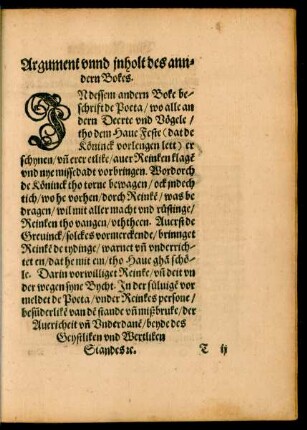 Argument vnnd jnholt des ann⸗
dern Bokes.
IN dessem andern Boke be⸗
schrift de Poeta / wo alle an
dern Deerte vnd Vögele /
tho dem Haue Feste (dat de
Köninck vorlengen lett) er
schynen / vn̄ erer etlike / auer Reinken klage
vnd nye missedadt vorbringen. Wordorch
de Köninck tho torne bewagen / ock jndech
tich / wo he vorhen / dorch Reinkē / was be
dragen / wil mit aller macht vnd rüstinge /
Reinken tho vangen / vththeen. Auerst de
Greuinck / solckes vormerckende / brinnget
Reinkē de tydinge / warnet vn̄ vnderrich⸗
tet en / dat he mit em / tho Haue ghā schö⸗
le. Darin vorwilliget Reinke / vn̄ deit vn
der wegen syne Bycht. In der sülüigē vor
meldet de Poeta / vnder Reinkes persone /
besünderlikē van dē stande vn̄ mißbruke / der
Auericheit vn̄ Vnderdanē / beyde des
Geystliken vnd Wertliken
Standes ꝛc.
T ij